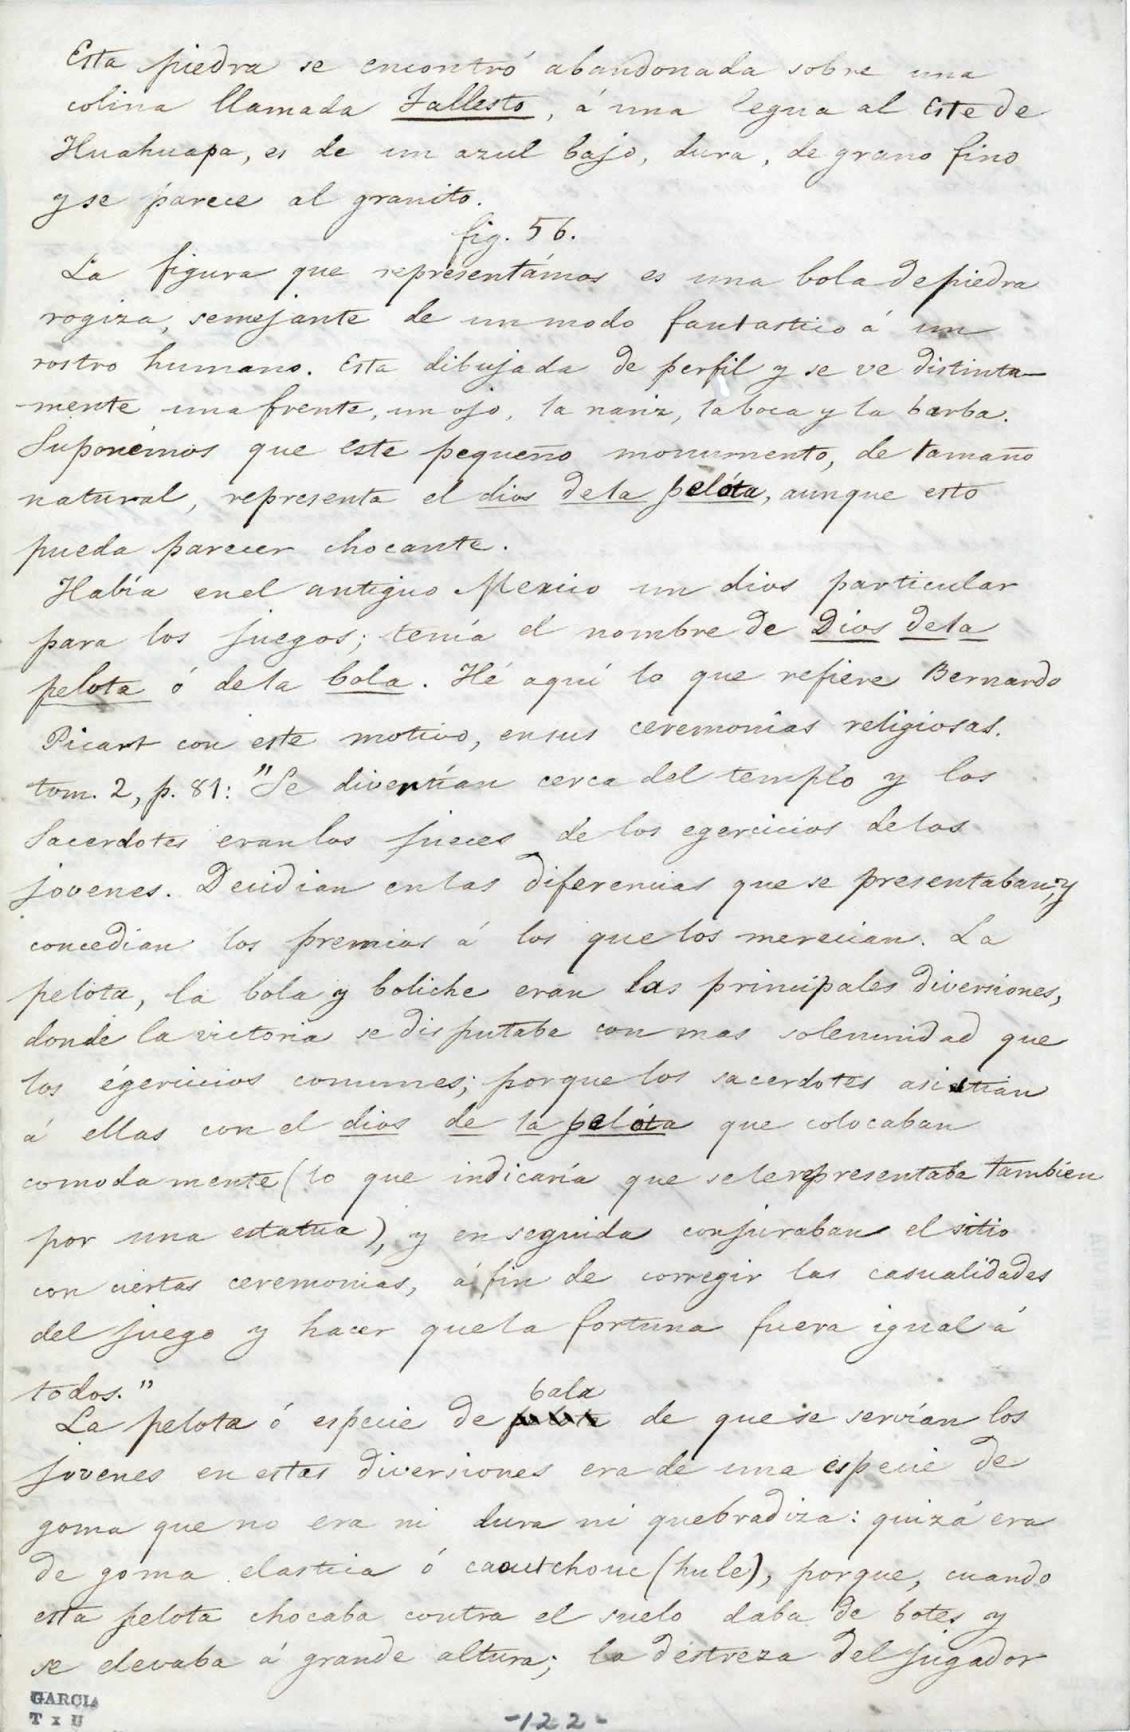 Esta piedra se encontró abandonada sobre una
colina llamada Tallesto, á una legua al Este de
Huahuapa, es de un azul bajo, dura, de grano fino
y se parece al granito.
fig. 56.
La figura que representámos es una bola de piedra
rogiza, semejante de un modo fantastico á un
rostro humano. Esta dibujada de perfil y se ve distinta-
mente una frente, un ojo, la nariz, la boca y la barba.
Suponémos que este pequeño monumento, de tamaño
natural, representa el dios de la pelóta, aunque esto
pueda parecer chocante.
Había en el antiguo Mexico un dios particular
para los juegos; tenía el nombre de Dios de la
pelota ó de la bola. Hé aquí lo que refiere Bernardo
Picart con este motivo, en sus ceremonias religiosas.
tom. 2, p. 81: "Se divertían cerca del templo y los
Sacerdotes eran los jueces de los egercicios de los
jovenes. Decidian en las diferencias que se presentaban, y
concedian los premios á los que los merecian. La
pelota, la bola y boliche eran las principales diversiones,
donde la victoria se disputaba con mas solemnidad que
los égercicios comunes; porque los sacerdotes asistían
á ellas con el dios de la pelóta que colocaban
comodamente (lo que indicaría que se le representaba tambien
por una estatua), y en seguida conjuraban el sitio
con ciertas ceremonias, á fin de corregir las casualidades
del juego y hacer que la fortuna fuera igual á
todos."
bala
La pelota ó especie de de que se servían los
jovenes en estas diversiones era de una especie de
goma que no era ni dura ni quebradiza: quizá era
de goma elastica ó caoutchouc (hule), porque, cuando
esta pelota chocaba contra el suelo daba de botes y
se elevaba á grande altura; la destreza del jugador
GARCIA
T x U
-122-